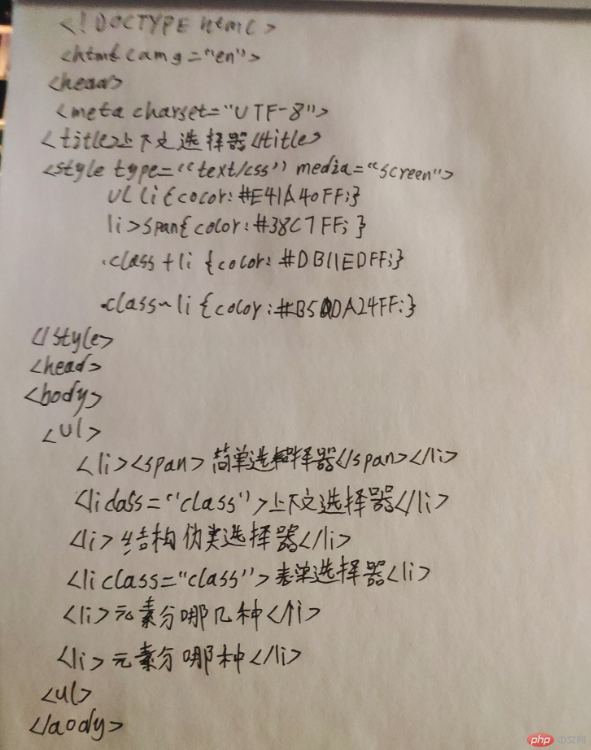 <!DOCTYPE html>
<html lang="en">
<head>
<meta charset="UTF-8">
<title>上下文选择器</title>
<style type="text/css" media="screen">
ul li{color:#E41A40FF;}
li>span{color:#38C7FF;}
.class+li {color:#DB11EDFF;}
.class~li {color:#B50DA24FF;}
</style>
<head>
<body>
<ul>
<li><span>简单选择器</span></li>
<li class="class">上下文选择器</li>
<li>结构伪类选择器</li>
<li class="class">表单选择器<li>
<li>元素分哪几种</li>
<li>元素分哪种</li>
<ul>
</aody>
php中文网